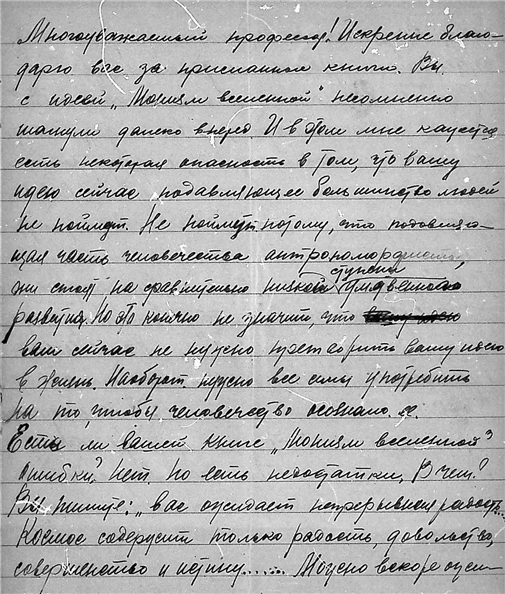 Многоуважаемый профессор! Искренне благо-
дарю вас за присланные книги. Вы
с идеей „Монизм вселенной" несомненно
шагнули далеко вперед И в этом мне кажется
есть некоторая опасность в том, что вашу
идею сейчас подавляющее большинство людей
не поймет. Не поймет потому, что подавляю-
щая часть человечества антропоморфисты,
они стоят на сравнительно низкой ступени умственного
развития. Но это конечно не значит, что
вам сейчас не нужно претворить вашу идею
в жизнь. Наоборот нужно все силы употребить
на то, чтобы человечество осознало ее.
Есть ли вашей книге „Монизм вселенной"
ошибки? Нет. Но есть недостатки, В чем?
Вы пишите: „вас ожидает непрерывная радость...
Космос содержит только радость, довольство,
совершенство и истину...... Можно вскоре ожи-